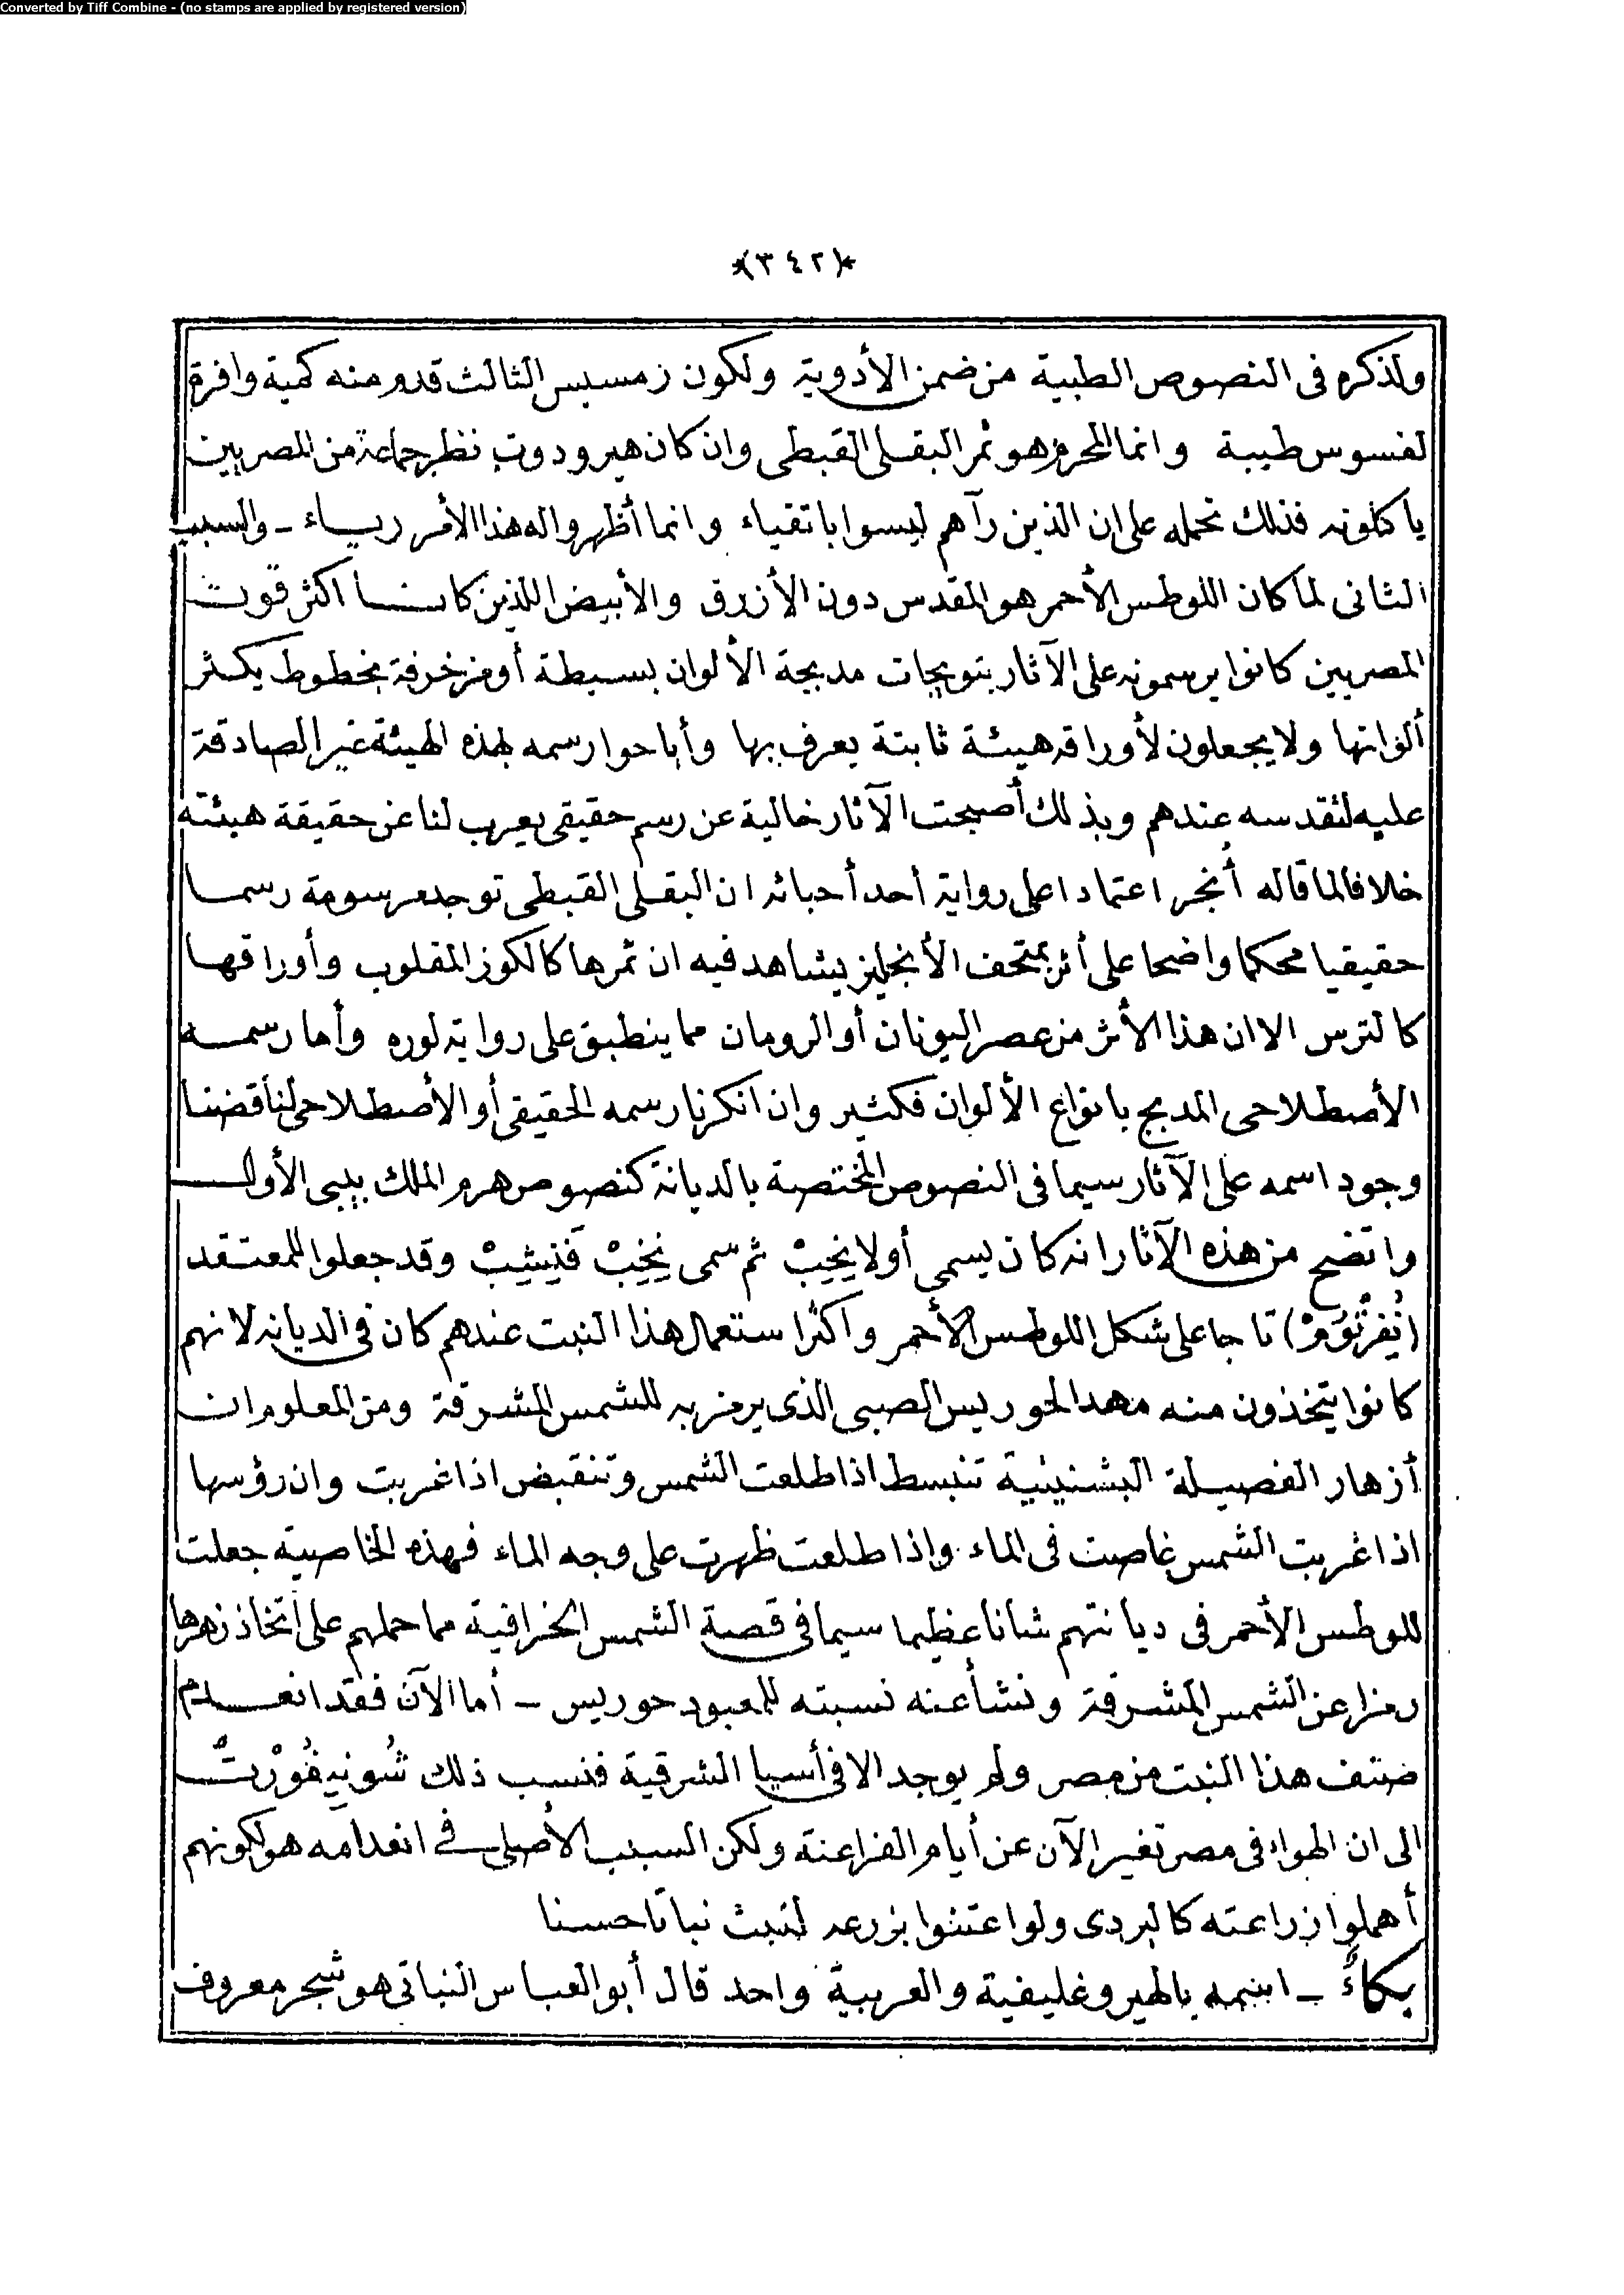 Converted by Tiff Combine - (no stamps are applied by registered version)
*(٣٤٢)*
ولذكره فى النصوص الطبية من ضمن الأدوية ولكون رمسيس الثالث قدم منه كمية وافرة
لقسوس طيبة وانما المحرم هو ثمر البقلى القبطى وان كان هيرودوت نظر جماعة من المصريين
ياكلونه فذلك نحمله على ان الذين رآهم ليسوا باتقياء وانما أظهروا له هذا الأمر رياء - والسبب
الثانى لما كان اللوطس الأحمر هو المقدس دون الأزرق والأبيض اللذين كانا أكثر قوت
المصريين كانوا يرسمونه على الآثار بتويجات مدبجة الألوان بسيطة أو مزخرفة بخطوط يكثر
ألوانها ولا يجعلون لأوراقه هيئة ثابتة يعرف بها وأباحوا رسمه بهذه الهيئة غير الصادقة
عليه لتقدسه عندهم وبذلك أصبحت الآثار خالية عن رسم حقيقى يعرب لنا عن حقيقة هيئته
خلافا لما قاله أنجر اعتمادا على رواية أحد أحبائه ان البقلى القبطى توجد مرسومة رسما
حقيقيا محكما واضحا على أثر بمتحف الأنجليز يشاهد فيه ان ثمرها كالكوز المقلوب وأوراقها
كالترس الا ان هذا الأثر من عصر اليونان أو الرومان مما ينطبق على رواية لوره وأما رسمه
الأصطلاحى المدبج بانواع الألوان فكثير وان انكرنا رسمه الحقيقى أو الأصطلاحى لناقضنا
وجود اسمه على الآثار سيما فى النصوص المختصة بالديانة كنصوص هرم الملك بيبى الأول
واتضح من هذه الآثار انه كان يسمى أولا نِخِبْ ثم سمى نِخِبْ فَنِشِبْ وقد جعلوا للمعتقد
(نُفِرْتُومْ) تاجا على شكل اللوطس الأحمر وأكثر استعمال هذا النبت عندهم كان فى الديانه لانهم
كانوا يتخذون منه مهدا لحوريس الصبى الذى يرمز به للشمس المشرقة ومن المعلوم ان
أزهار الفصيلة البشنينية تنبسط اذا طلعت الشمس وتنقبض اذا غربت وان رؤسها
اذا غربت الشمس غاصت فى الماء واذا طلعت ظهرت على وجه الماء فهذه الخاصية جعلت
للوطس الأحمر فى ديانتهم شانا عظيما سيما فى قصة الشمس الخرافية مما حملهم على اتخاذ زهرها
رمزا عن الشمس المشرقة ونشأ عنه نسبته للمعبود حوريس - أما الآن فقد انعدم
صنف هذا النبت من مصر ولم يوجد الا فى أسيا الشرقية فنسب ذلك شُونِيفُورْتْ
الى ان الهواء فى مصر تغير الآن عن أيام الفراعنة ولكن السبب الأصلى فى انعدامه هو لكونهم
أهملوا زراعته كالبردى ولو اعتنوا بزرعه لنبت نباتا حسنا
بكاءٌ - اسمه بالهيروغليفية والعربية واحد قال أبو العباس النباتى هو شجر معروف